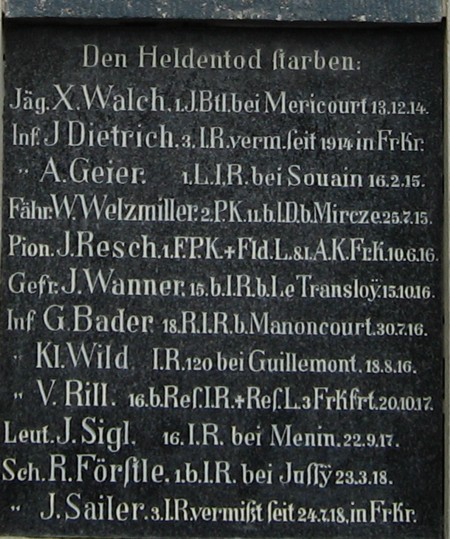 Den Heldentod ſtarben:
Jäg. X. Walch. 1. J. Btl. bei Mericourt 13.12.14.
Inf. J Dietrich. 3. I.R. verm. ſeit 1914 in FrKr.
" A. Geier. 1. L.I.R. bei Souain 16.2.15.
Fähr. W. Welzmiller. 2. P.K. 11. b. I.D. b. Mircze. 25.7.15.
Pion. J. Resch. 1. F.P.K. + Fld. L. & 1. A.K. Fr.K. 10.6.16.
Gefr. J. Wanner. 15. b. I.R. b. Le Transloÿ. 15.10.16.
Inf G. Bader. 18. R.I.R. b. Manoncourt. 30.7.16.
" Kl. Wild I.R. 120 bei Guillemont. 18.8.16.
" V. Rill. 16. b. Reſ. I.R. + Reſ. L. 3 Frkfrt. 20.10.17.
Leut. J. Sigl. 16. I.R. bei Menin. 22.9.17.
Sch. R. Förſtle. 1. b. I.R. bei Juſſÿ 23.3.18.
" J. Sailer. 3. I.R. vermißt ſeit 24.7.18, in FrKr.